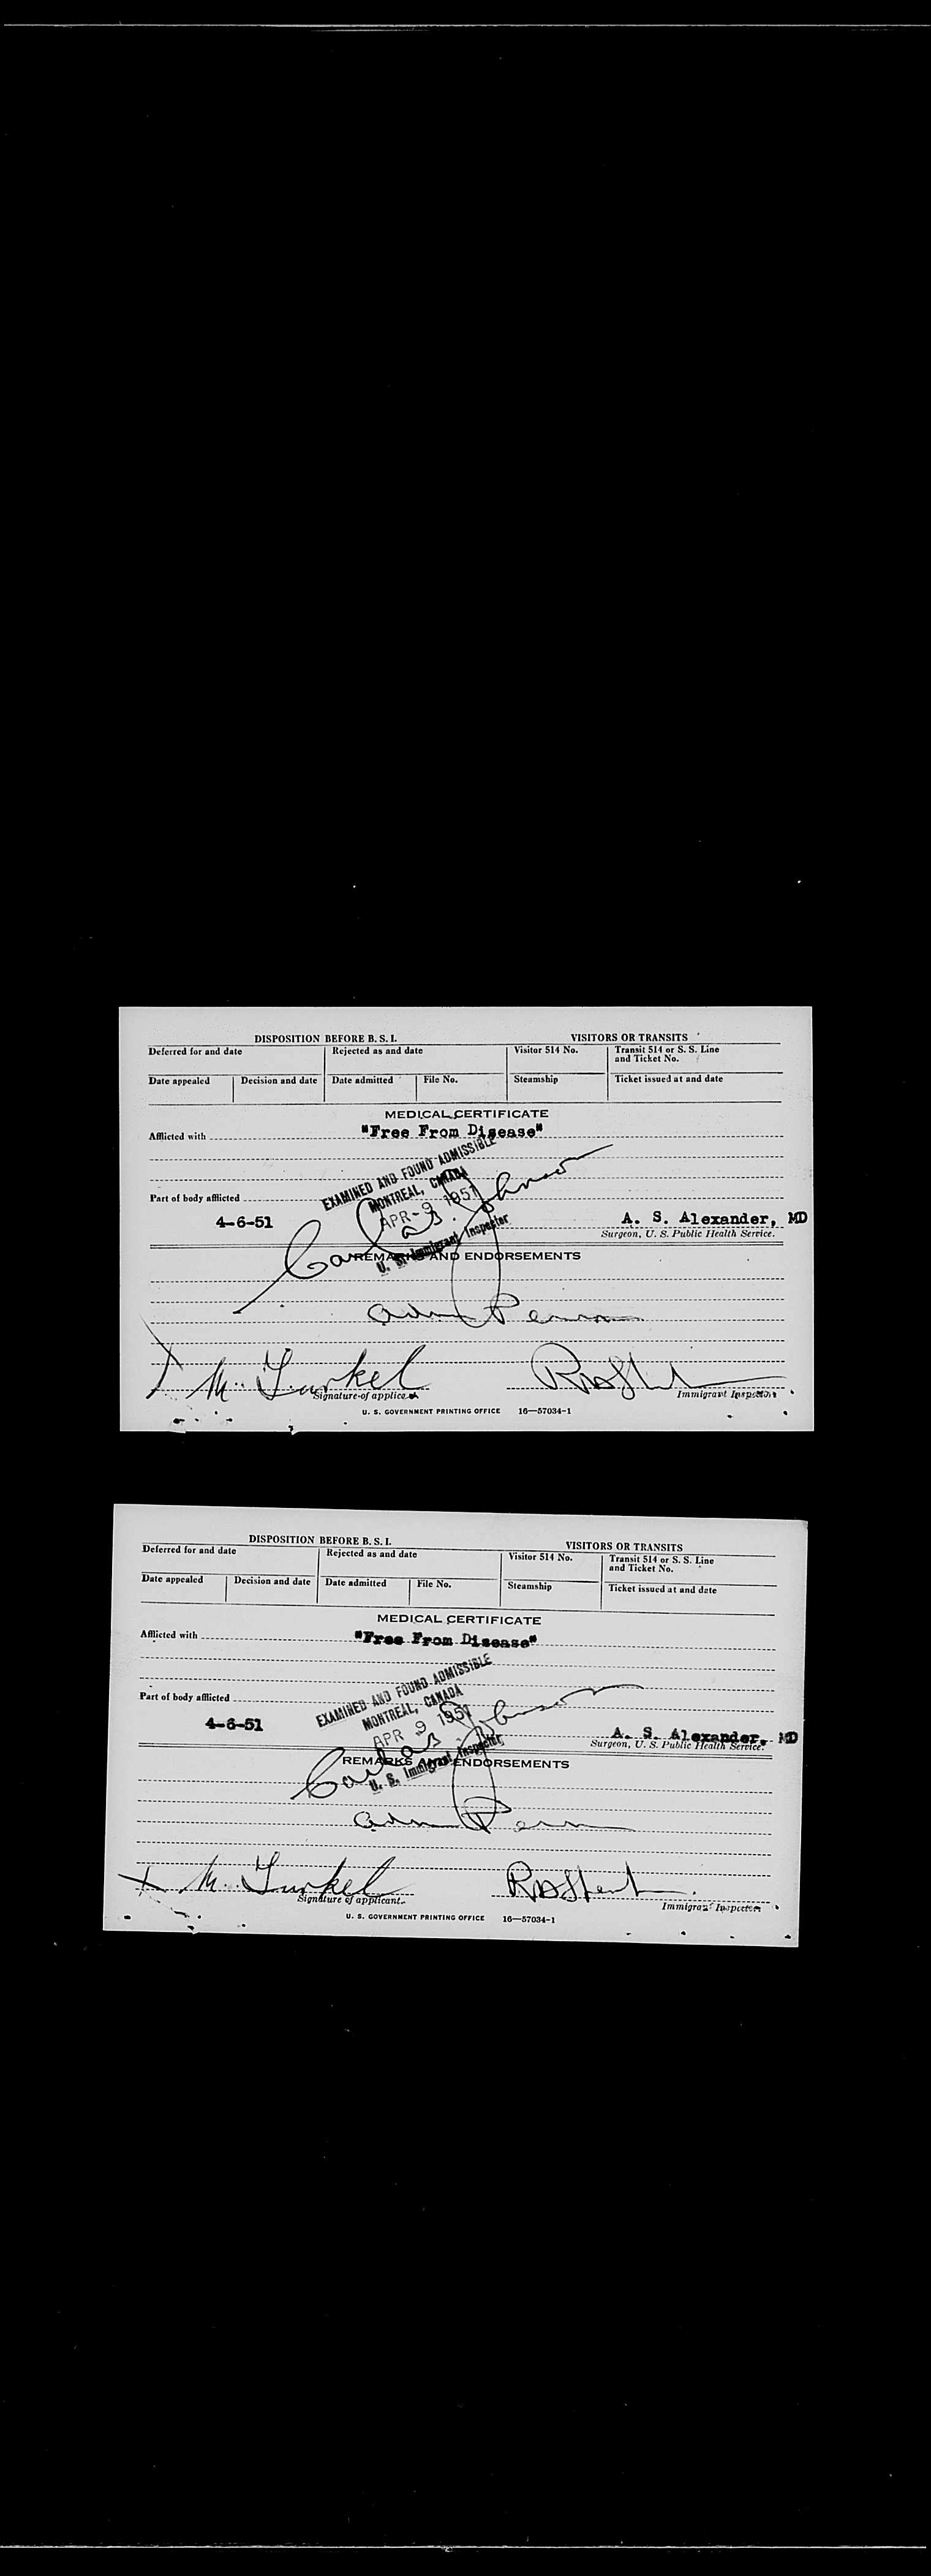 DISPOSITION BEFORE B. S. I. VISITORS OR TRANSITS
Deferred for and date Rejected as and date Visitor 514 No. Transit 514 or S. S. Line and Ticket No.
Date appealed Decision and date Date admitted File No. Steamship Ticket issued at and date
MEDICAL CERTIFICATE
Afflicted with "Free From Disease"
EXAMINED AND FOUND ADMISSIBLE
MONTREAL, CANADA
Part of body afflicted
APR-9 1951
Johnson
4-6-51 A. S. Alexander, MD
Surgeon, U. S. Public Health Service.
U. S. Immigrant Inspector
REMARKS AND ENDORSEMENTS
Adm Perm
M. Turkel
Signature of applicant Immigrant Inspector.
U. S. GOVERNMENT PRINTING OFFICE 16—57034-1
DISPOSITION BEFORE B. S. I. VISITORS OR TRANSITS
Deferred for and date Rejected as and date Visitor 514 No. Transit 514 or S. S. Line and Ticket No.
Date appealed Decision and date Date admitted File No. Steamship Ticket issued at and date
MEDICAL CERTIFICATE
Afflicted with "Free From Disease"
EXAMINED AND FOUND ADMISSIBLE
MONTREAL, CANADA
Part of body afflicted
APR 9 1951
Johnson
4-6-51 A. S. Alexander, MD
Surgeon, U. S. Public Health Service.
U. S. Immigrant Inspector
REMARKS AND ENDORSEMENTS
Adm Perm
M. Turkel
Signature of applicant. Immigrant Inspector.
U. S. GOVERNMENT PRINTING OFFICE 16—57034-1